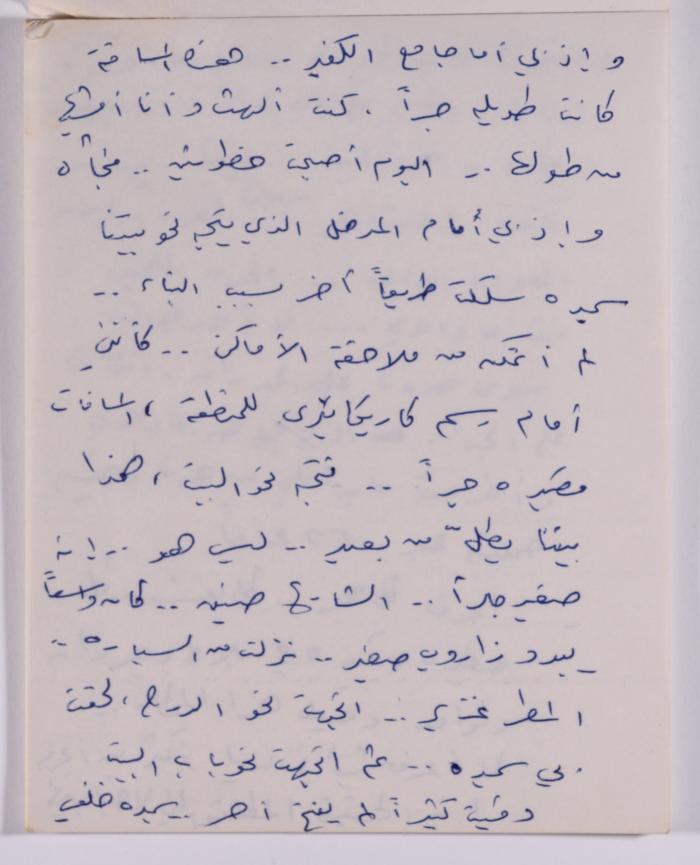 وإذ بي أمام جامع الكفير .. هذه المسافة
كانت طويلة جداً . كنت ألهث وأنا أمشيها
من طولها .. اليوم أصبحت خطوتين .. فجأة
وإذ بي أمام المدخل الذي يتجه نحو بيتنا
سميره سلكت طريقاً آخر بسبب البناء ..
لم أتمكن من ملاحقة الأماكن .. كأنني
أمام رسم كاريكاتيري للمنطقة ، المسافات
قصيره جداً .. نتجه نحو البيت ، هذا
بيتنا يطلّ من بعيد .. ليس هو .. إنه
صغير جداً .. الشارع ضيق .. كان واسعاً
يبدو زاروب صغير .. نزلت من السيارة ..
المطر غزير .. اتجهت نحو الدرج ، لحقت
بي سميره .. ثم اتجهت نحو باب البيت
دقيت كثيراً لم يفتح أحد .. سميره خلفي